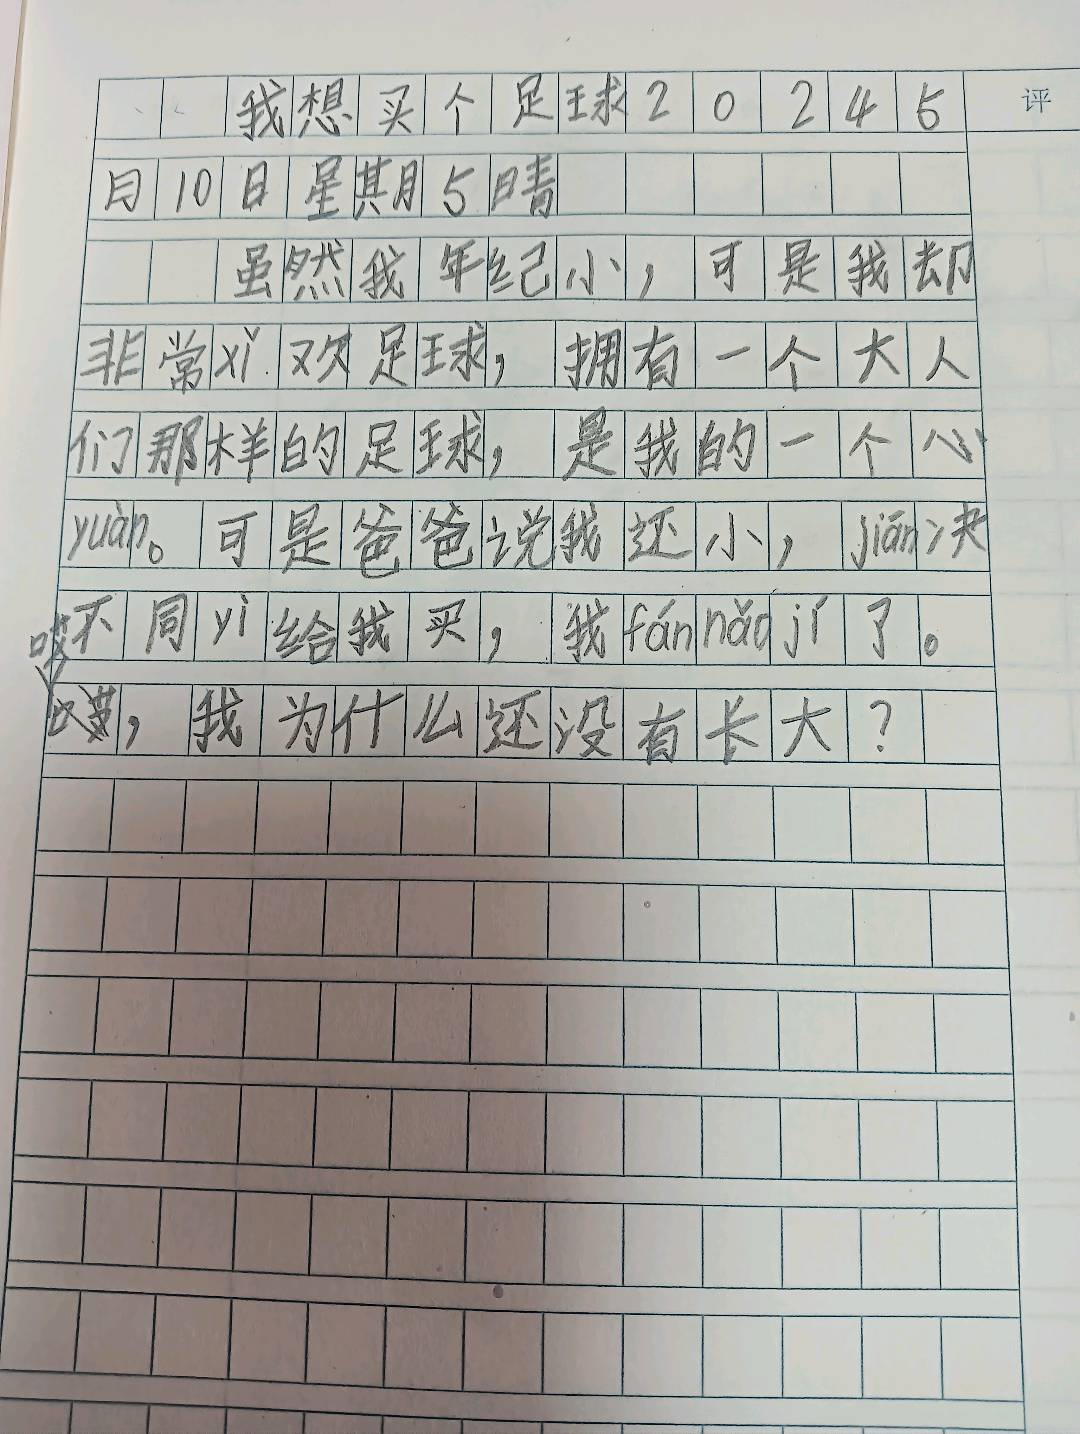 我想买个足球20245 评
月10日星期5晴
虽然我年纪小，可是我却
非常xǐ欢足球，拥有一个大人
们那样的足球，是我的一个心
yuàn。可是爸爸说我还小，jiān决
不同yì给我买，我fánnǎojí了。
，我为什么还没有长大？